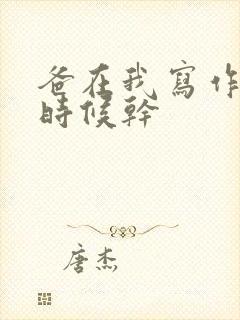 爸在我寫作
時候幹
唐杰